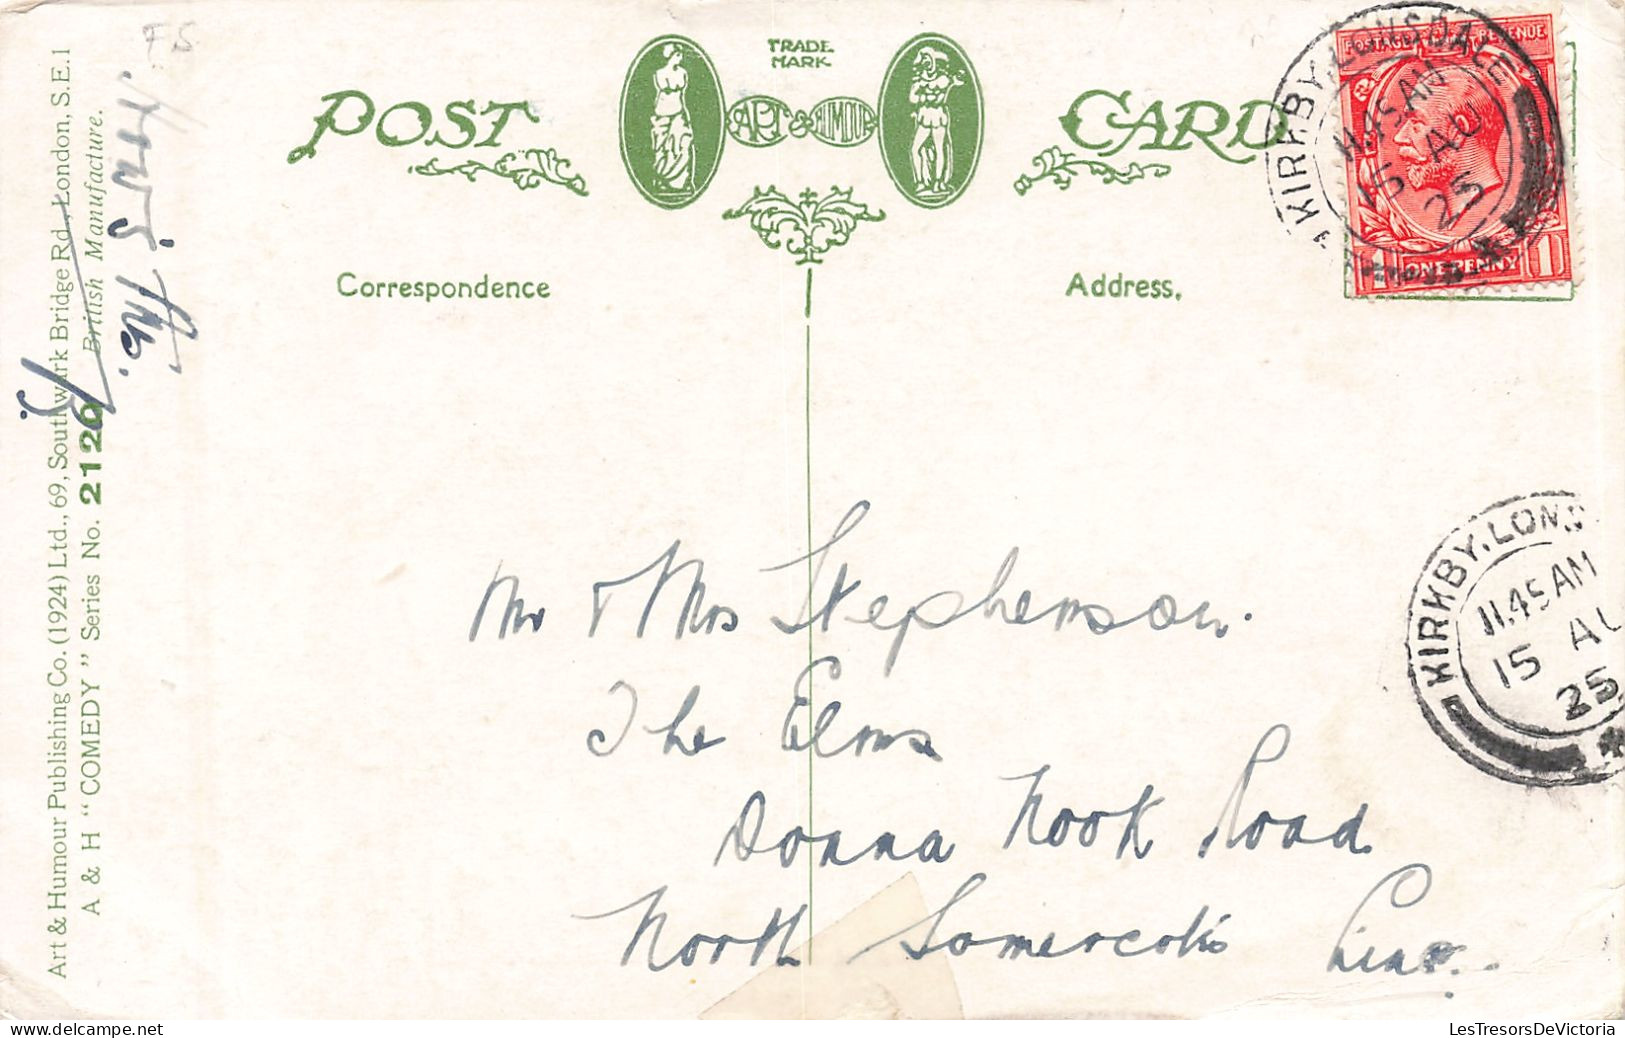 TRADE
MARK
POST
ART & HUMOUR
CARD
Correspondence
Address.
POSTAGE REVENUE
1 ONE PENNY 1
KIRKBY.LONSDALE
11.45 AM
15 AU
25
KIRKBY.LONS
11.45 AM
15 AU
25
Mr & Mrs Stephenson.
The Elms
Donna Nook Road
North Somercotes Lincs.
Art & Humour Publishing Co. (1924) Ltd., 69, Southwark Bridge Rd., London, S.E.1
British Manufacture.
A & H "COMEDY" Series No. 2120
How's this.
B.
FS
LesTresorsDeVictoria · delcampe.net